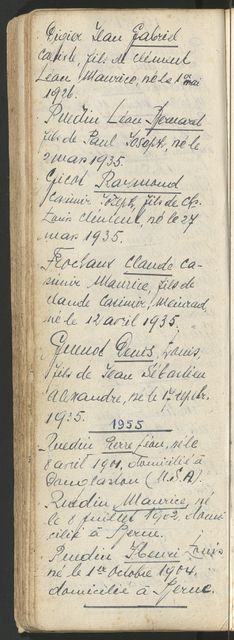 Digier Jean Gabriel
Casimir, fils de Clément
Léon Maurice, né le 1er mai
1926.
Ruedin Léon-Bernard
fils de Paul Joseph, né le
2 mars 1935.
Gicot Raymond
Casimir Joseph, fils de Chs-
Louis Clément, né le 27
mars 1935.
Frochaux Claude Ca-
simir Maurice, fils de
Claude Casimir, Meinrad,
né le 12 avril 1935.
Guenot Denis, Louis,
fils de Jean Sébastien
Alexandre, né le 1er septbr.
1935.
1955
Ruedin Pierre Léon, né le
8 avril 1901, domicilié à
(U.S.A)
Ruedin Maurice, né
le 8 juillet 1902, domi
cilié à Berne.
Ruedin Henri-Louis
né le 1er octobre 1904,
domicilié à Berne.